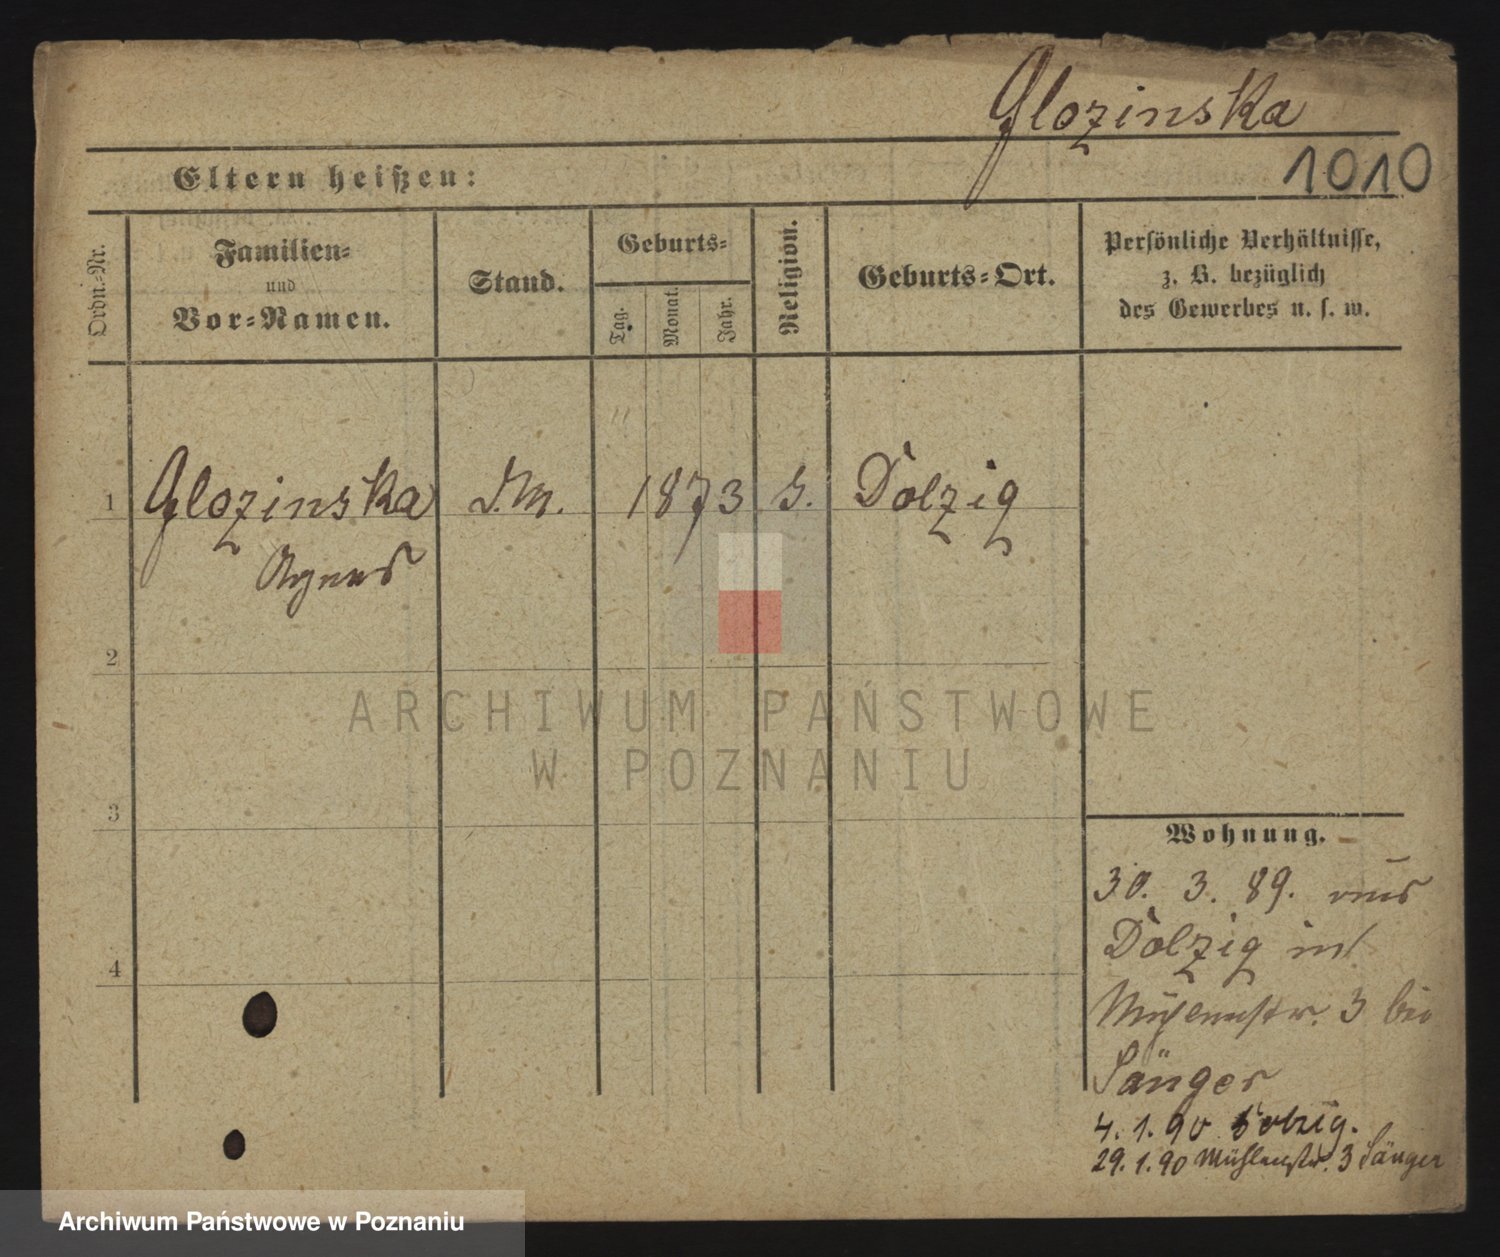 Glozinska
1010
Eltern heißen:
Ordn.-Nr.
Familien-
und
Vor-Namen.
Stand.
Geburts-
Tag.
Monat.
Jahr.
Religion.
Geburts-Ort.
Persönliche Verhältnisse,
z. B. bezüglich
des Gewerbes u. s. w.
1 Glozinska D.M. 1873 k. Dolzig
Agnes
2
3
4
Wohnung.
30. 3. 89. aus
Dolzig
Mühlenstr. 3 bei
Sänger
4. 1. 90 Dolzig.
29. 1. 90 Mühlenstr. 3 Sänger
ARCHIWUM PAŃSTWOWE
W POZNANIU
Archiwum Państwowe w Poznaniu